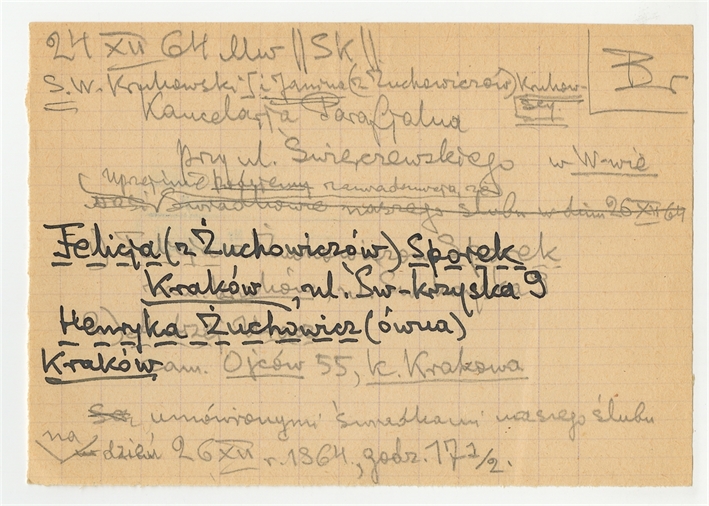 24 XII 64 Mw ||SK||
Br
S.W. Krukowski J i Janina (z Żuchowiczów) Krukow-
scy
Kancelarja Parafjalna
przy ul. Świerczewskiego w W-wie
uprzejmie zawiadamiają że
świadkowie naszego ślubu w dniu 26 XII 64
Felicja (z Żuchowiczów) Sporek
Kraków, ul. Św-krzyska 9
Henryka Żuchowicz (ówna)
Kraków
zam. Ojców 55, k. Krakowa
Są umówionymi świadkami naszego ślubu
na dzień 26 XII r. 1964, godz. 17 1/2.